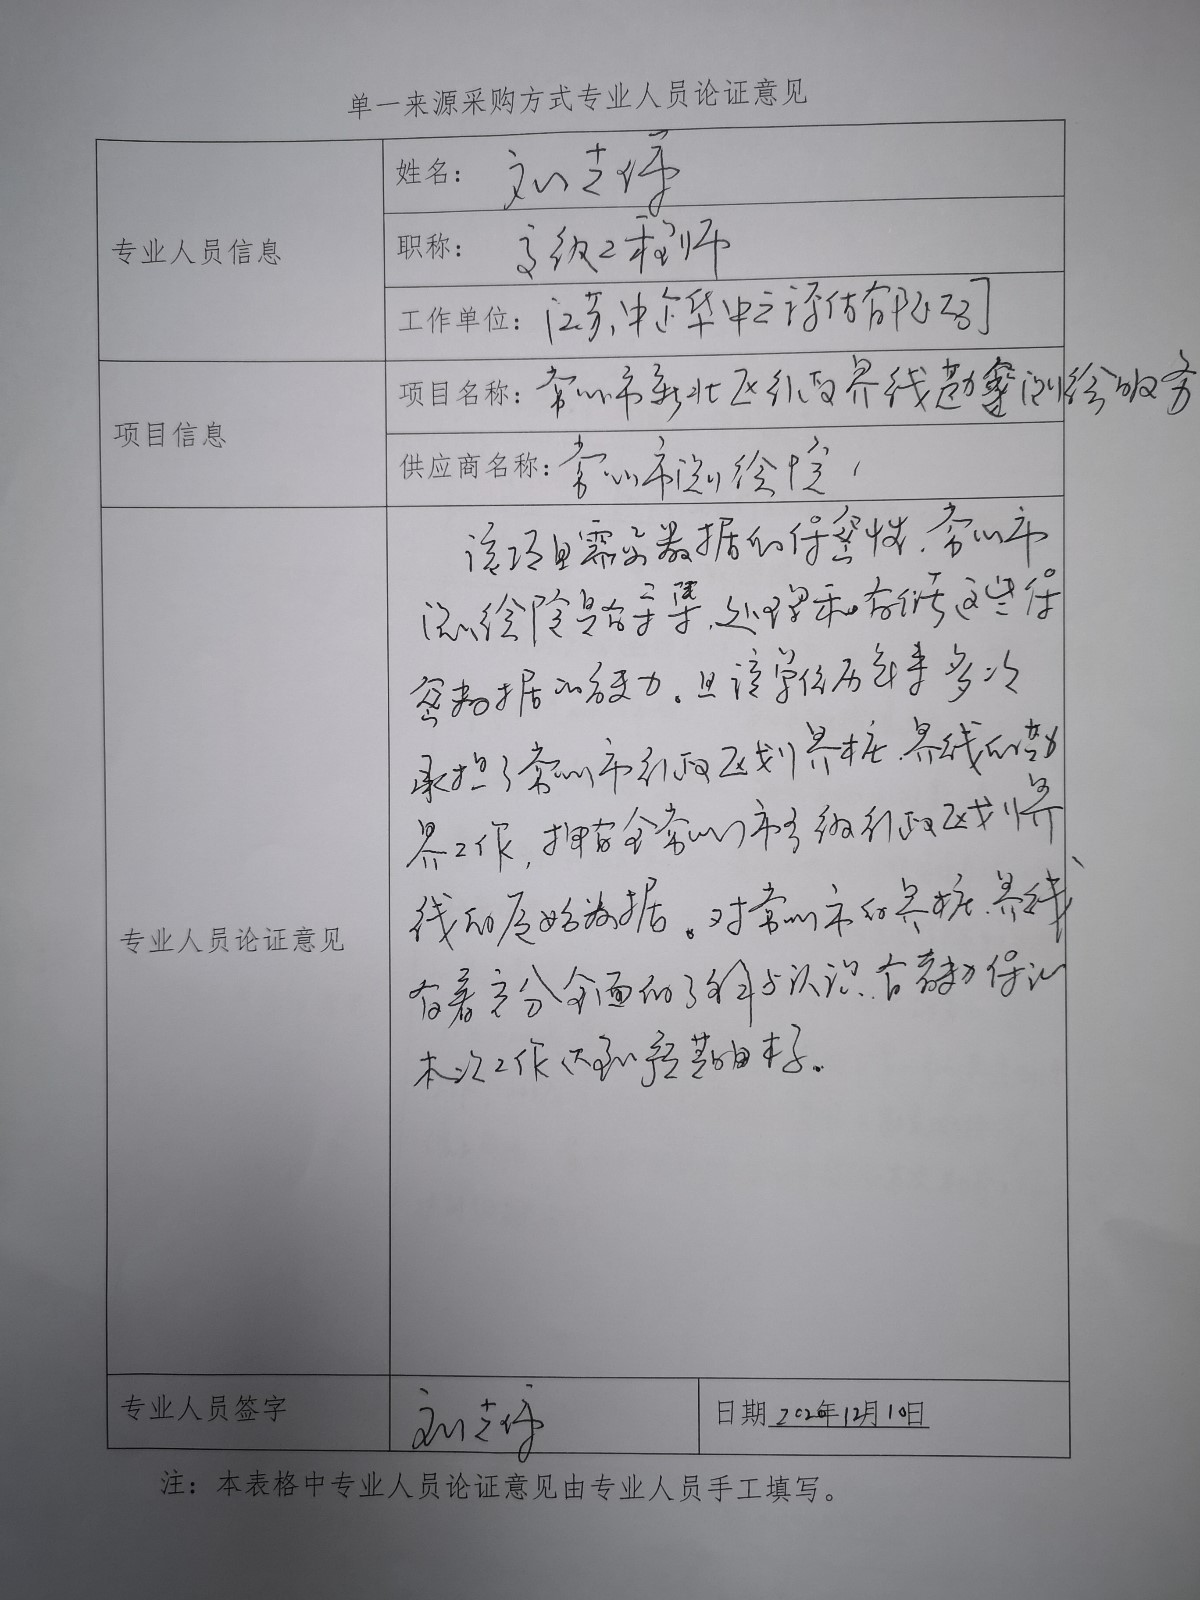 单一来源采购方式专业人员论证意见
专业人员信息
姓名：刘志伟
职称：高级工程师
工作单位：江苏中企华中天评估有限公司
项目信息
项目名称：常州市新北区行政界线勘察测绘服务
供应商名称：常州市测绘院
专业人员论证意见
该项目需要数据的保密性，常州市
测绘院具有采集、处理和存储这些保
密数据的能力。且该单位历年来多次
承担了常州市行政区划界桩、界线的勘
界工作，拥有全常州市各级行政区划界
线的原始数据。对常州市的界桩、界线
有着充分全面的了解与认识，有能力保证
本次工作达到预期目标。
专业人员签字
刘志伟
日期 2020年12月10日
注：本表格中专业人员论证意见由专业人员手工填写。